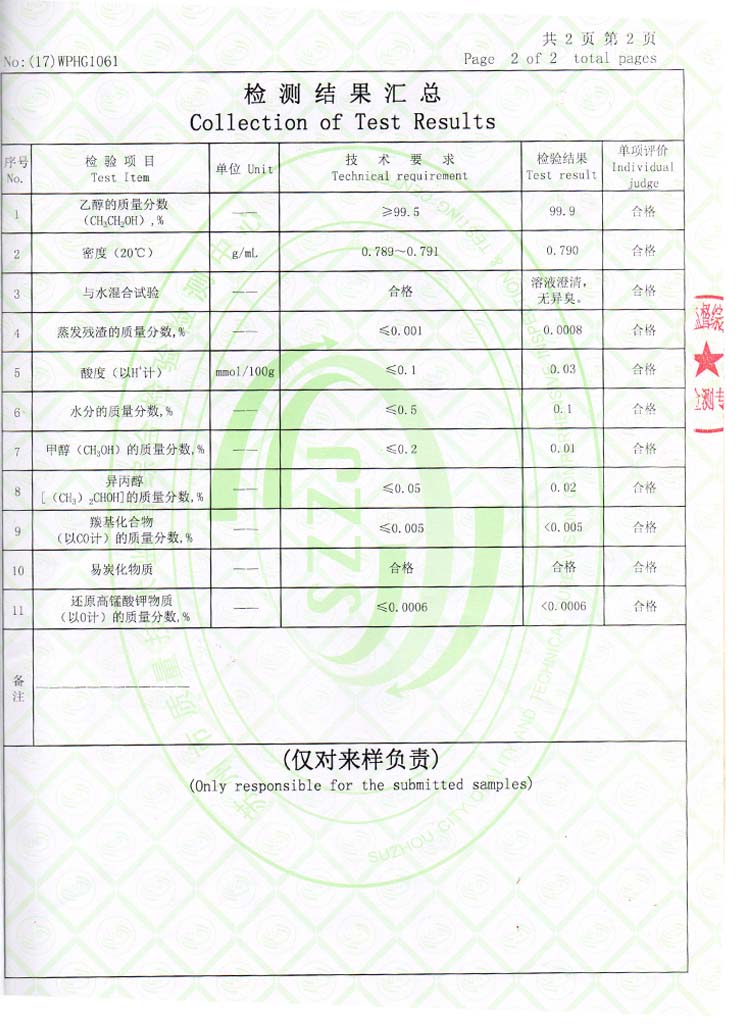 共 2 页 第 2 页
No:(17)WPHG1061
Page 2 of 2 total pages
检 测 结 果 汇 总
Collection of Test Results
序号
No.
检 验 项 目
Test Item
单位 Unit
技 术 要 求
Technical requirement
检验结果
Test result
单项评价
Individual
judge
1
乙醇的质量分数
(CH₃CH₂OH),%
——
≥99.5
99.9
合格
2
密度（20℃）
g/mL
0.789～0.791
0.790
合格
3
与水混合试验
——
合格
溶液澄清，
无异臭。
合格
4
蒸发残渣的质量分数,%
——
≤0.001
0.0008
合格
5
酸度（以H⁺计）
mmol/100g
≤0.1
0.03
合格
6
水分的质量分数,%
——
≤0.5
0.1
合格
7
甲醇（CH₃OH）的质量分数,%
——
≤0.2
0.01
合格
8
异丙醇
[（CH₃）₂CHOH]的质量分数,%
——
≤0.05
0.02
合格
9
羰基化合物
（以CO计）的质量分数,%
——
≤0.005
<0.005
合格
10
易炭化物质
——
合格
合格
合格
11
还原高锰酸钾物质
（以O计）的质量分数,%
——
≤0.0006
<0.0006
合格
备
注
(仅对来样负责)
(Only responsible for the submitted samples)
SZZJ